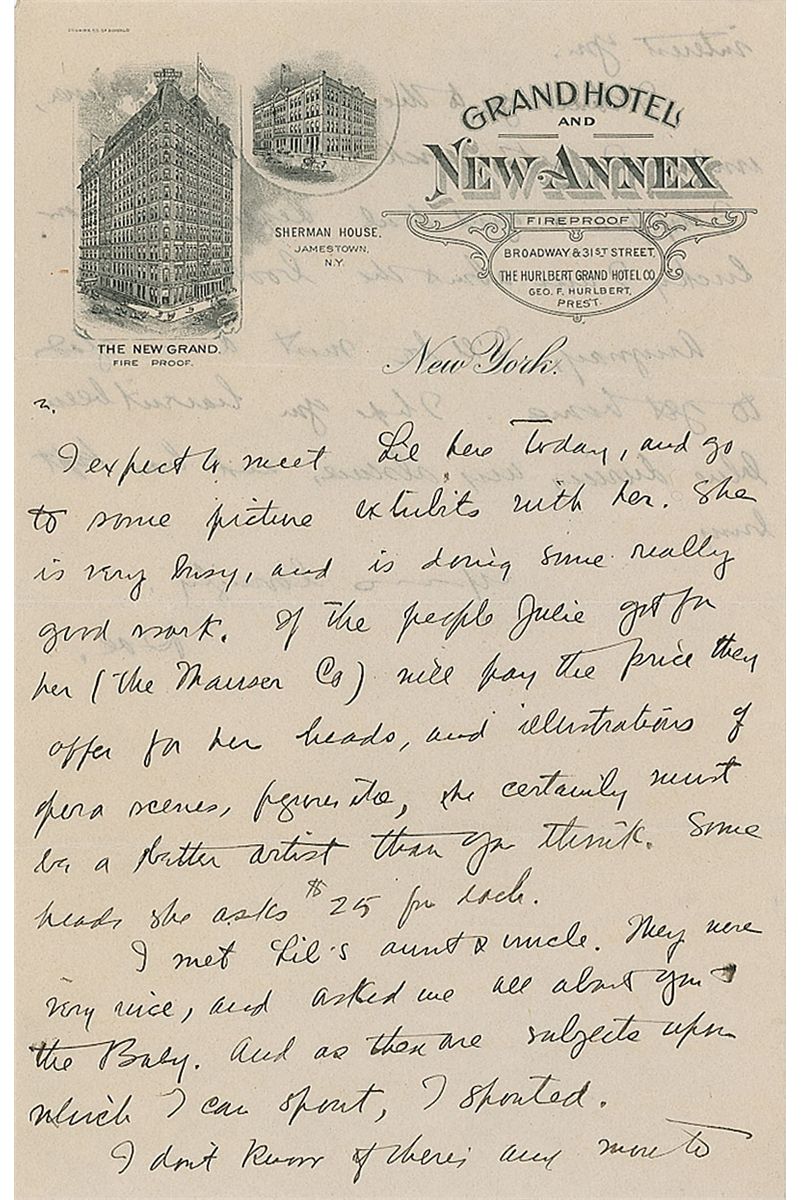 GRAND HOTEL
AND
NEW ANNEX
FIREPROOF
BROADWAY & 31ST STREET.
THE HURLBERT GRAND HOTEL CO
GEO. F. HURLBERT,
PRES'T.
SHERMAN HOUSE.
JAMESTOWN,
N.Y.
THE NEW GRAND.
FIRE PROOF.
New York.
2.
I expect to meet Lil here today, and go
to some picture exhibits with her. She
is very busy, and is doing some really
good work. If the people Julie got for
her (the Mauser Co) will pay the price they
offer for her heads, and illustrations of
opera scenes, figures etc, she certainly must
be a better artist than you think. Some
heads she asks $25 for each.
I met Lil's aunt & uncle. They were
very nice, and asked me all about you &
the Baby. And as these are subjects upon
which I can spout, I spouted.
I don't know if there's any more to